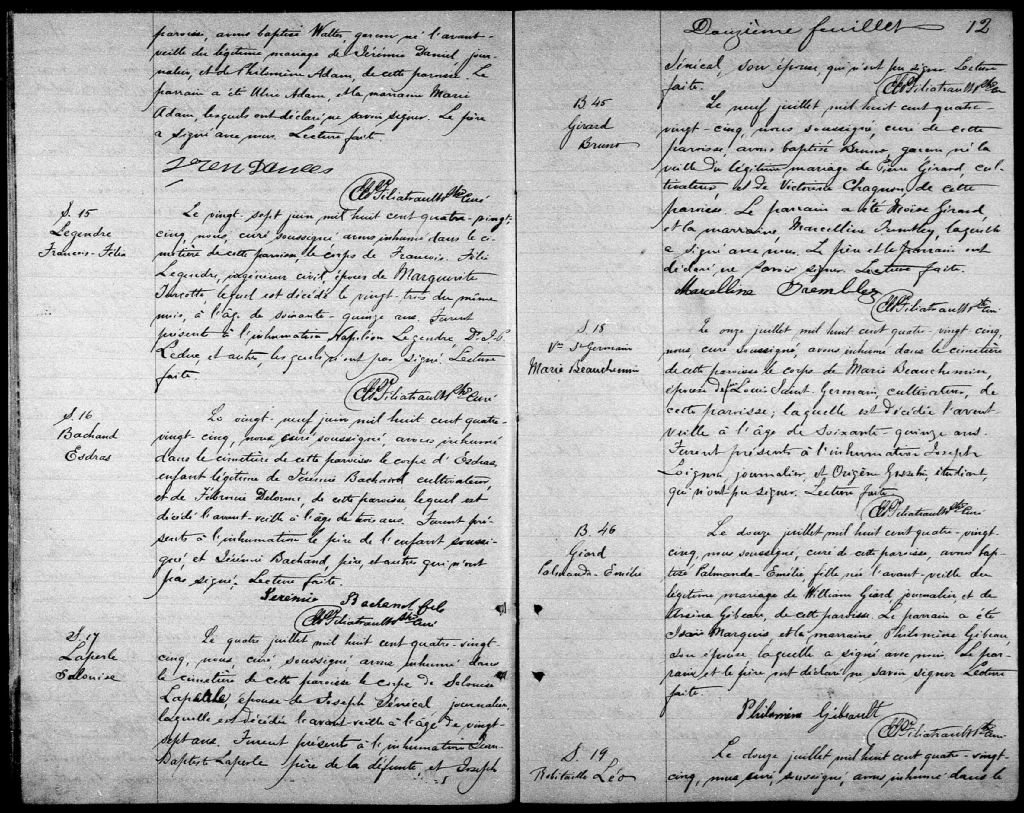 paroisse, avons baptisé Walter, garçon né l'avant-
veille du légitime mariage de Jérémie Daniel, jour-
nalier, et de Philemène Adam, de cette paroisse. Le
parrain a été Ulric Adam, et la marraine Marie
Adam, lesquels ont déclaré ne savoir signer. Le père
a signé avec nous. Lecture faite.
Filiatrault Ptre Curé
S. 15
Legendre
François-Félix
Le vingt-sept juin, mil huit cent quatre-vingt-
cinq, nous, curé soussigné avons inhumé dans le ci-
metière de cette paroisse le corps de François-Félix
Legendre, ingénieur civil, époux de Marguerite
Turcotte, lequel est décédé le vingt-trois du même
mois, à l'âge de soixante-quinze ans. Furent
présents à l'inhumation Napoléon Legendre, Dr. J. L.
Leduc, et autres, lesquels n'ont pas signé. Lecture
faite
Filiatrault Ptre Curé
S. 16
Bachand
Esdras
Le vingt-neuf juin mil huit cent quatre-
vingt-cinq, nous, curé soussigné, avons inhumé
dans le cimetière de cette paroisse le corps d'Esdras,
enfant légitime de Jérémie Bachand cultivateur,
et de Fébronie Delorme, de cette paroisse, lequel est
décédé l'avant-veille à l'âge de trois ans. Furent pré-
sents à l'inhumation le père de l'enfant soussi-
gné, et Jérémie Bachand, père, et autres qui n'ont
pas signé. Lecture faite.
Jeremie Bachand fils
Filiatrault Ptre Curé
S. 17
Laperle
Salouise
Le quatre juillet mil huit cent quatre-vingt-
cinq, nous, curé soussigné avons inhumé dans
le cimetière de cette paroisse le corps de Salouise
Laperle, épouse de Joseph Sénécal journalier,
laquelle est décédée l'avant-veille à l'âge de vingt-
sept ans. Furent présents à l'inhumation Jean-
Baptiste Laperle père de la défunte, et Joseph
Douzième feuillet 12
Sénécal, son époux, qui n'ont pu signer. Lecture
faite.
Filiatrault Ptre Cu
B 45
Girard
Bruno
Le neuf juillet, mil huit cent quatre-
vingt-cinq, nous soussigné, curé de cette
paroisse, avons baptisé Bruno, garçon né la
veille du légitime mariage de Pierre Girard, cul-
tivateur, et de Victorine Chagnon, de cette
paroisse. Le parrain a été Moïse Girard,
et la marraine, Marcelline Trembley, laquelle
a signé avec nous. Le père et le parrain ont
déclaré ne savoir signer. Lecture faite.
Marcelline Trembley
Filiatrault Ptre Curé
S 18
Ve St Germain
Marie Beauchemin
Le onze juillet, mil huit cent, quatre-vingt cinq,
nous, curé soussigné, avons inhumé dans le cimetière
de cette paroisse le corps de Marie Beauchemin,
épouse de Louis Saint-Germain, cultivateur, de
cette paroisse; laquelle est décédée l'avant-
veille à l'âge de soixante-quinze ans.
Furent présents à l'inhumation Joseph
journalier, et Origène étudiant,
qui n'ont pu signer. Lecture faite.
Filiatrault Ptre Curé
B. 46
Giard
Palmanda-Emélie
Le douze juillet mil huit cent quatre-vingt-
cinq, nous soussigné, curé de cette paroisse, avons bap-
tisé Palmanda-Emélie fille née l'avant-veille du
légitime mariage de William Giard journalier, et de
Arsène Gibeau, de cette paroisse. Le parrain a été
Isaïe Marquis, et la marraine, Philomène Gibeau,
son épouse laquelle a signé avec nous. Le par-
rain et le père ont déclaré ne savoir signer Lecture
faite.
Philomène Gibeault
Filiatrault Ptre Curé
S. 19
Robitaille Léo
Le douze juillet mil huit cent quatre-vingt-
cinq, nous curé, soussigné, avons inhumé dans le